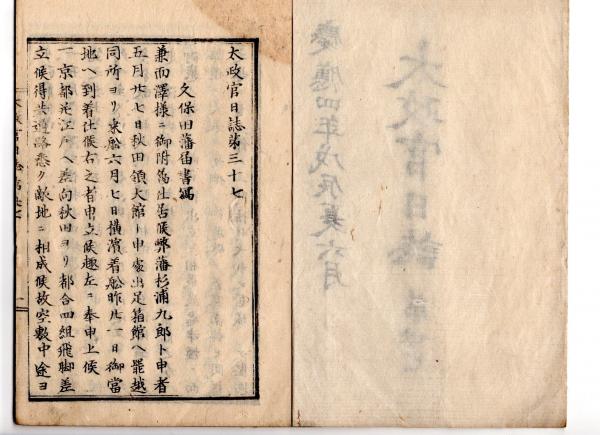 太政官日誌第三十七
久保田藩届書寫
兼而澤様ニ御附爲仕置候弊藩杉浦九郎ト申者
五月廿七日秋田領大館ト申處出足箱館ヘ罷越
同所ヨリ乗船六月七日横濱着船昨廿一日御當
地ヘ到着仕候右之者申立候趣左ニ奉申上候
一京都并江戸ヘ差向秋田ヨリ都合四組飛脚差
立候得共道路悉ク敵地ニ相成候故空敷中途ヨ
太政官日誌
慶應四年戊辰夏六月